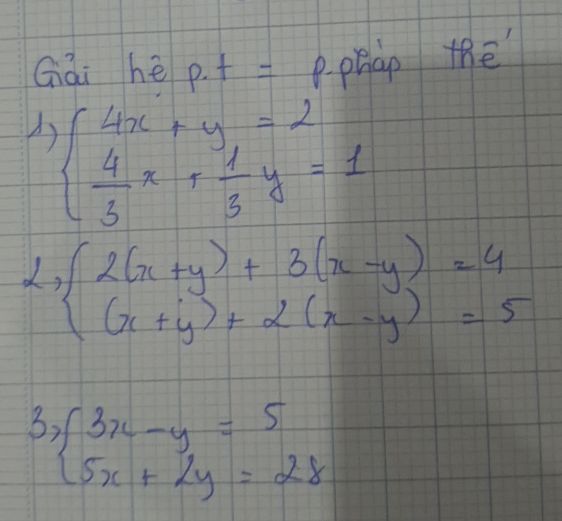 Giải hệ p.t = p.pháp thế
1, { 4x + y = 2
4/3 x + 1/3 y = 1
2, { 2(x + y) + 3(x - y) = 4
(x + y) + 2(x - y) = 5
3, { 3x - y = 5
5x + 2y = 28